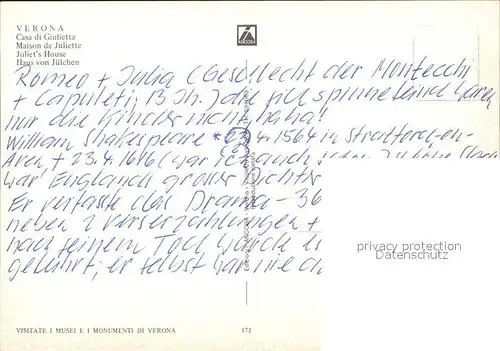 VERONA
Casa di Giulietta
Maison de Juliette
Juliet's House
Haus von Jülchen
ANCORA
Romeo + Julia (Geschlecht der Montecchi
+ Capuleti, 13 Jh.) die sich spinnefeind waren
nur die Kinder nicht haha!
William Shakespeare * 23.4.1564 in Stratford-on-
Aven + 23.4.1616 (war ich auch schon
war Englands grosser Dichter
Er verfaste das Drama - 36
neben 2 Verserzählungen +
nach seinem Tod wurde es
geführt; er selbst war nie
privacy protection
Datenschutz
VISITATE I MUSEI E I MONUMENTI DI VERONA
173